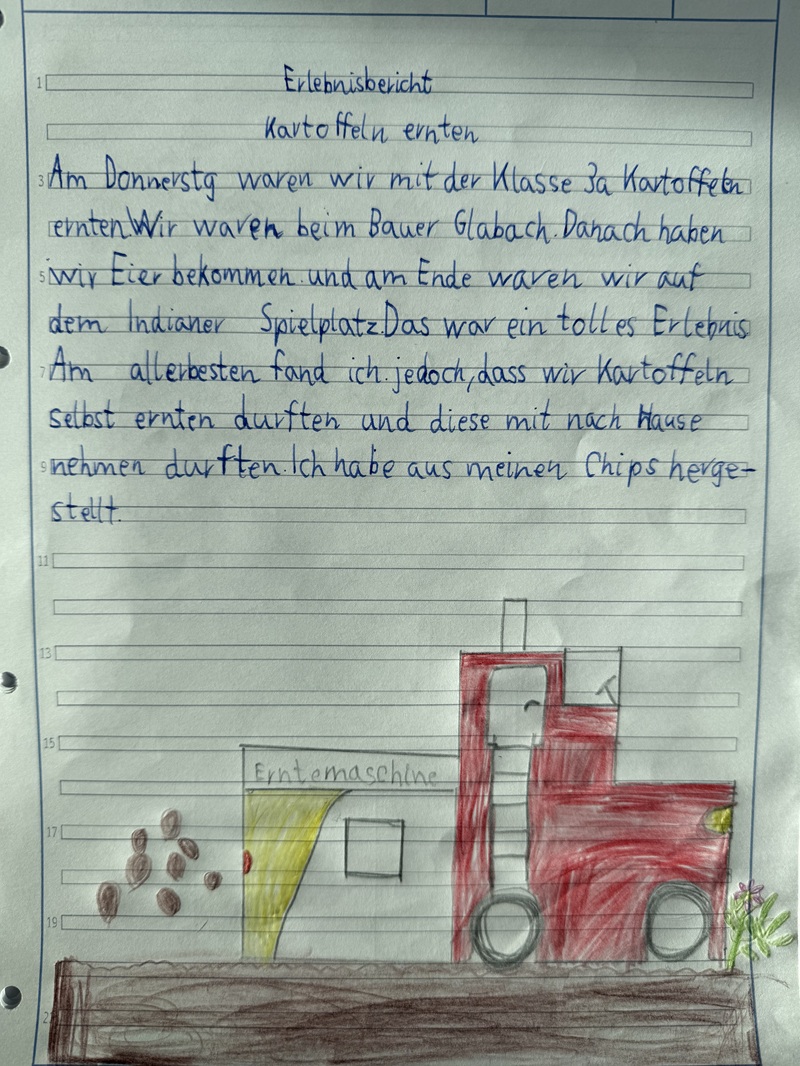 Erlebnisbericht
Kartoffeln ernten
Am Donnerstg waren wir mit der Klasse 3a Kartoffeln
ernten.Wir waren beim Bauer Glabach. Danach haben
wir Eier bekommen und am Ende waren wir auf
dem Indianer Spielplatz.Das war ein tolles Erlebnis
Am allerbesten fand ich jedoch, dass wir Kartoffeln
selbst ernten durften und diese mit nach Hause
nehmen durften. Ich habe aus meinen Chips herge-
stellt.
Erntemaschine
1
3
5
7
9
11
13
15
17
19